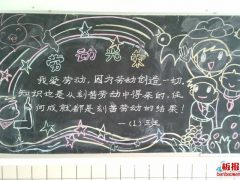 劳动光荣
我爱劳动，因为劳动创造一切，
知识也是从刻苦劳动中得来的，任
何成就都是刻苦劳动的结果！
板报